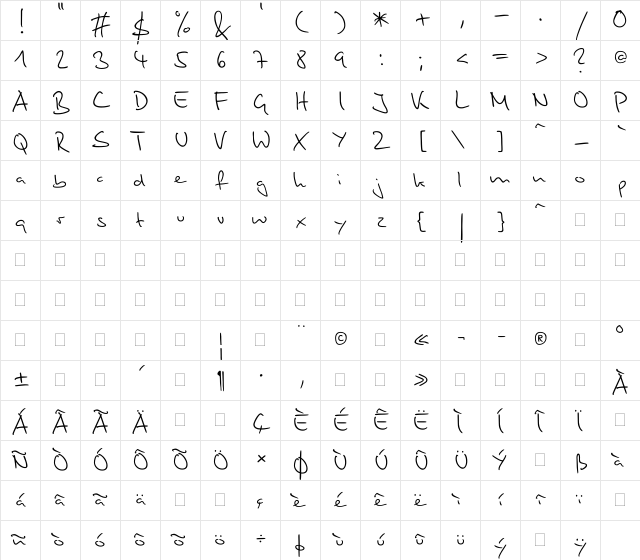 ! " # $ % & ' ( ) * + , - . / 0
1 2 3 4 5 6 7 8 9 : ; < = > ? @
A B C D E F G H I J K L M N O P
Q R S T U V W X Y Z [ \ ] ^ _ `
a b c d e f g h i j k l m n o p
q r s t u v w x y z { | } ^
¦ ¨ © « ¬ - ® °
± ´ ¶ · ¸ » À
Á Â Ã Ä Ç È É Ê Ë Ì Í Î Ï
Ñ Ò Ó Ô Õ Ö × Ø Ù Ú Û Ü Ý ß à
á â ã ä ç è é ê ë ì í î ï
ñ ò ó ô õ ö ÷ ø ù ú û ü ý ÿ